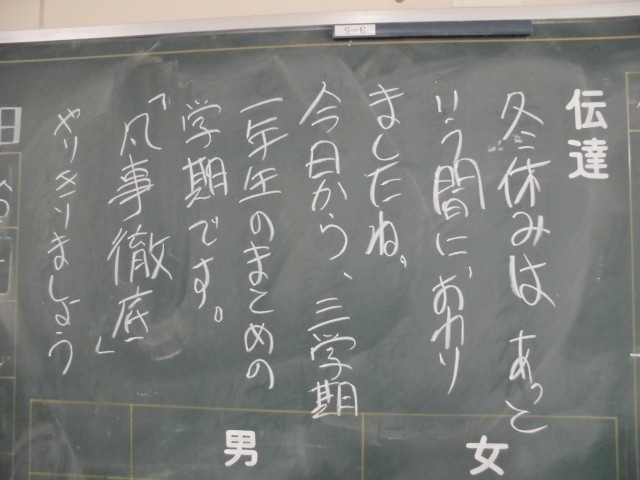 伝達
冬休みは あっと
いう間に、おわり
ましたね。
今日から、三学期
一年生のまとめの
学期です。
「凡事徹底」
やりきりましょう
女
男